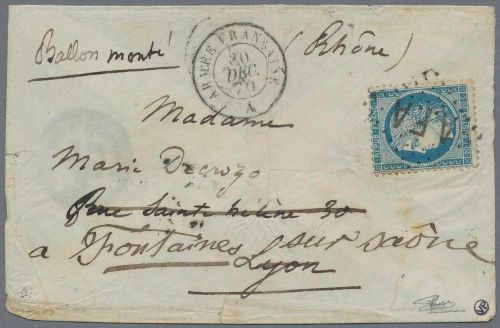 Ballon monté
(Rhône)
ARMÉE FRANÇAISE
30
DEC.
70
A
AFA
Madame
Marie Decrozo
Rue Sainte hélène 30
a Fontaines sur saône
Lyon